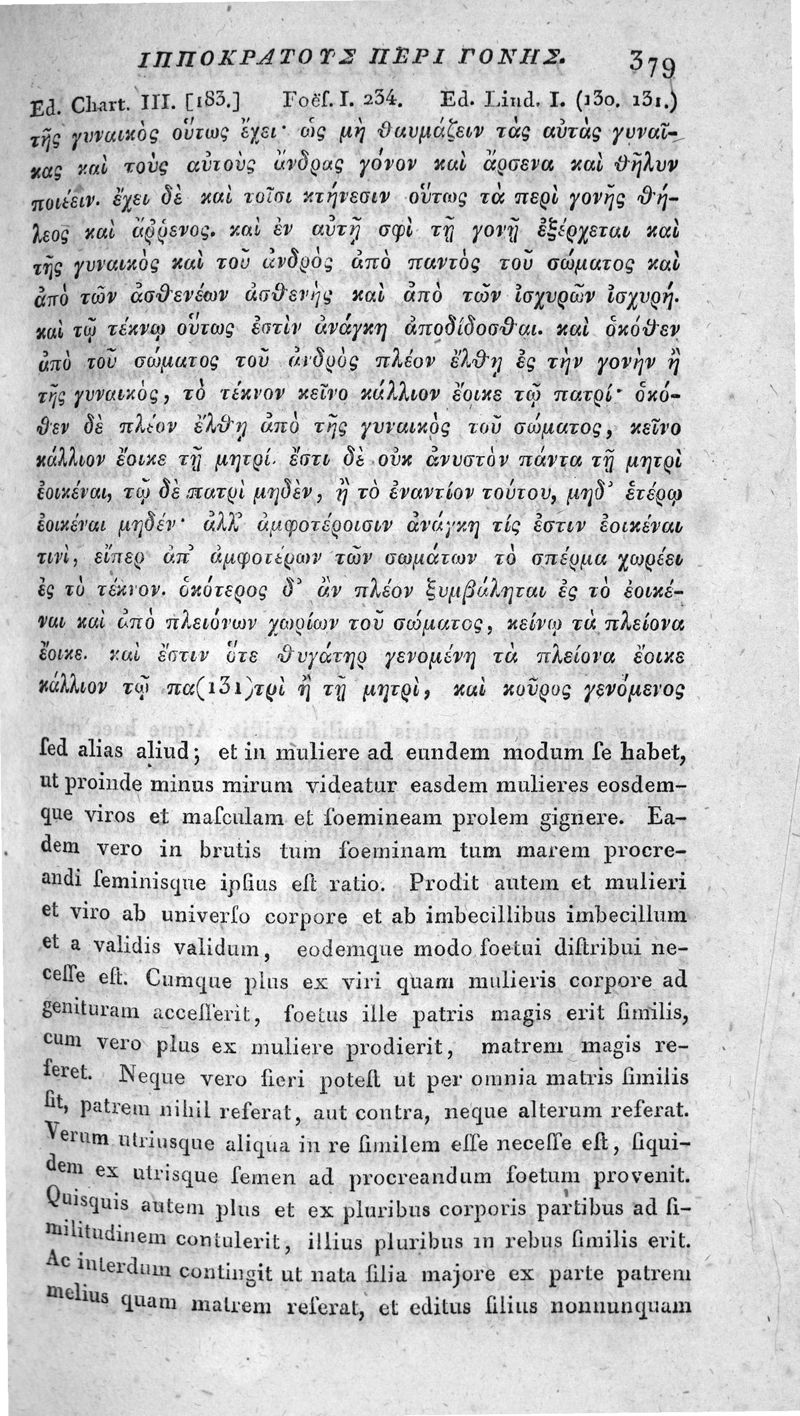 ΙΠΠΟΚΡΑΤΟΥΣ ΠΕΡΙ ΓΟΝΗΣ. 379
Ed. Chart. III. [183.] Foëſ. I. 234. Ed. Lind. I. (130. 131.)
τῆς γυναικὸς οὕτως ἔχει· ὡς μὴ θαυμάζειν τὰς αὐτὰς γυναῖ-
κας καὶ τοὺς αὐτοὺς ἄνδρας γόνον καὶ ἄρσενα καὶ θῆλυν
ποιέειν. ἔχει δὲ καὶ τοῖσι κτήνεσιν οὕτως τὰ περὶ γονῆς θή-
λεος καὶ ἄῤῥενος. καὶ ἐν αὐτῇ σφὶ τῇ γονῇ ἐξέρχεται καὶ
τῆς γυναικὸς καὶ τοῦ ἀνδρὸς ἀπὸ παντὸς τοῦ σώματος καὶ
ἀπὸ τῶν ἀσθενέων ἀσθενὴς καὶ ἀπὸ τῶν ἰσχυρῶν ἰσχυρή.
καὶ τῷ τέκνῳ οὕτως ἐστὶν ἀνάγκη ἀποδίδοσθαι. καὶ ὁκόθεν
ἀπὸ τοῦ σώματος τοῦ ἀνδρὸς πλέον ἔλθῃ ἐς τὴν γονὴν ἢ
τῆς γυναικὸς, τὸ τέκνον κεῖνο κάλλιον ἔοικε τῷ πατρί· ὁκό-
θεν δὲ πλέον ἔλθῃ ἀπὸ τῆς γυναικὸς τοῦ σώματος, κεῖνο
κάλλιον ἔοικε τῇ μητρί. ἔστι δὲ οὐκ ἀνυστὸν πάντα τῇ μητρὶ
ἐοικέναι, τῷ δὲ πατρὶ μηδὲν, ἢ τὸ ἐναντίον τούτου, μηδ᾽ ἑτέρῳ
ἐοικέναι μηδέν· ἀλλ᾽ ἀμφοτέροισιν ἀνάγκη τίς ἐστιν ἐοικέναι
τινὶ, εἴπερ ἀπ᾽ ἀμφοτέρων τῶν σωμάτων τὸ σπέρμα χωρέει
ἐς τὸ τέκνον. ὁκότερος δ᾽ ἂν πλέον ξυμβάληται ἐς τὸ ἐοικέ-
ναι καὶ ἀπὸ πλειόνων χωρίων τοῦ σώματος, κείνῳ τὰ πλείονα
ἔοικε. καὶ ἔστιν ὅτε θυγάτηρ γενομένη τὰ πλείονα ἔοικε
κάλλιον τῷ πα(131)τρὶ ἢ τῇ μητρὶ, καὶ κοῦρος γενόμενος
ſed alias aliud; et in muliere ad eundem modum ſe habet,
ut proinde minus mirum videatur easdem mulieres eosdem-
que viros et maſculam et foemineam prolem gignere. Ea-
dem vero in brutis tum foeminam tum marem procre-
andi ſeminisque ipſius eſt ratio. Prodit autem et mulieri
et viro ab univerſo corpore et ab imbecillibus imbecillum
et a validis validum, eodemque modo foetui diſtribui ne-
ceſſe eſt. Cumque plus ex viri quam mulieris corpore ad
genituram acceſſerit, foetus ille patris magis erit ſimilis,
cum vero plus ex muliere prodierit, matrem magis re-
feret. Neque vero fieri poteſt ut per omnia matris ſimilis
ſit, patrem nihil referat, aut contra, neque alterum referat.
Verum utriusque aliqua in re ſimilem eſſe neceſſe eſt, ſiqui-
dem ex utrisque ſemen ad procreandum foetum provenit.
Quisquis autem plus et ex pluribus corporis partibus ad ſi-
militudinem contulerit, illius pluribus in rebus ſimilis erit.
Ac interdum contingit ut nata filia majore ex parte patrem
melius quam matrem referat, et editus filius nonnunquam